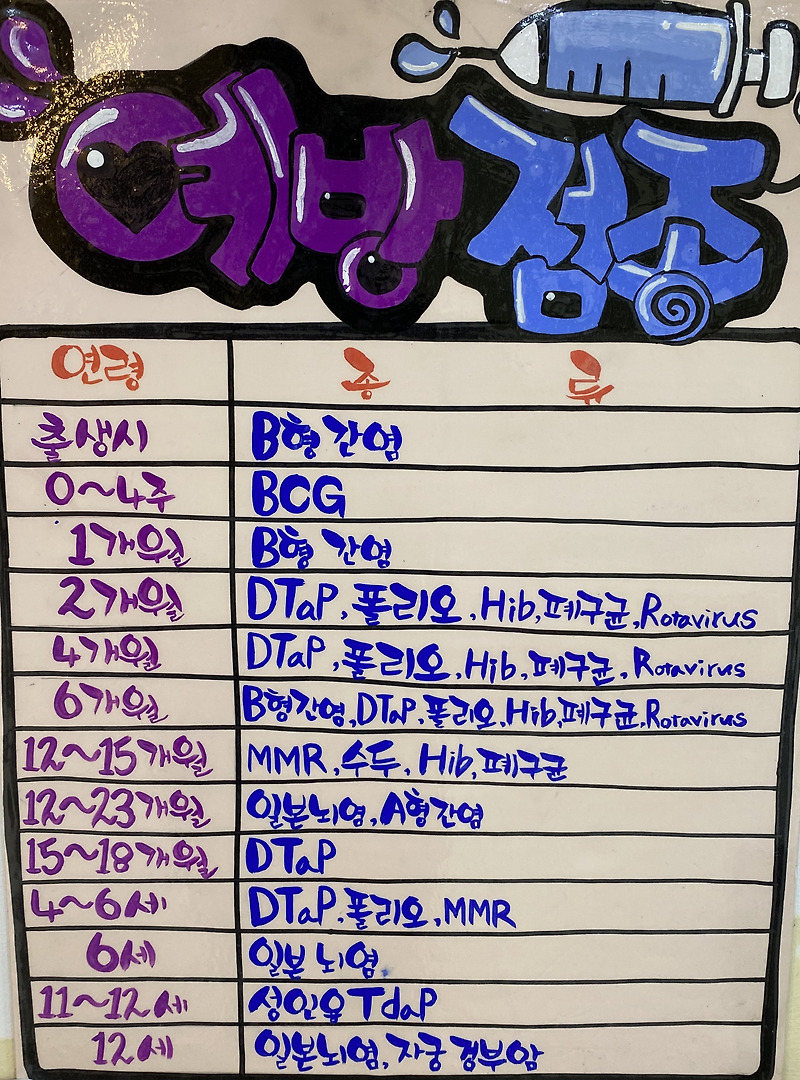 예방접종
연령 종류
출생시 B형 간염
0~4주 BCG
1개월 B형 간염
2개월 DTaP, 폴리오, Hib, 폐구균, Rotavirus
4개월 DTaP, 폴리오, Hib, 폐구균, Rotavirus
6개월 B형간염, DTaP, 폴리오, Hib, 폐구균, Rotavirus
12~15개월 MMR, 수두, Hib, 폐구균
12~23개월 일본뇌염, A형간염
15~18개월 DTaP
4~6세 DTaP, 폴리오, MMR
6세 일본 뇌염
11~12세 성인용 TdaP
12세 일본뇌염, 자궁경부암